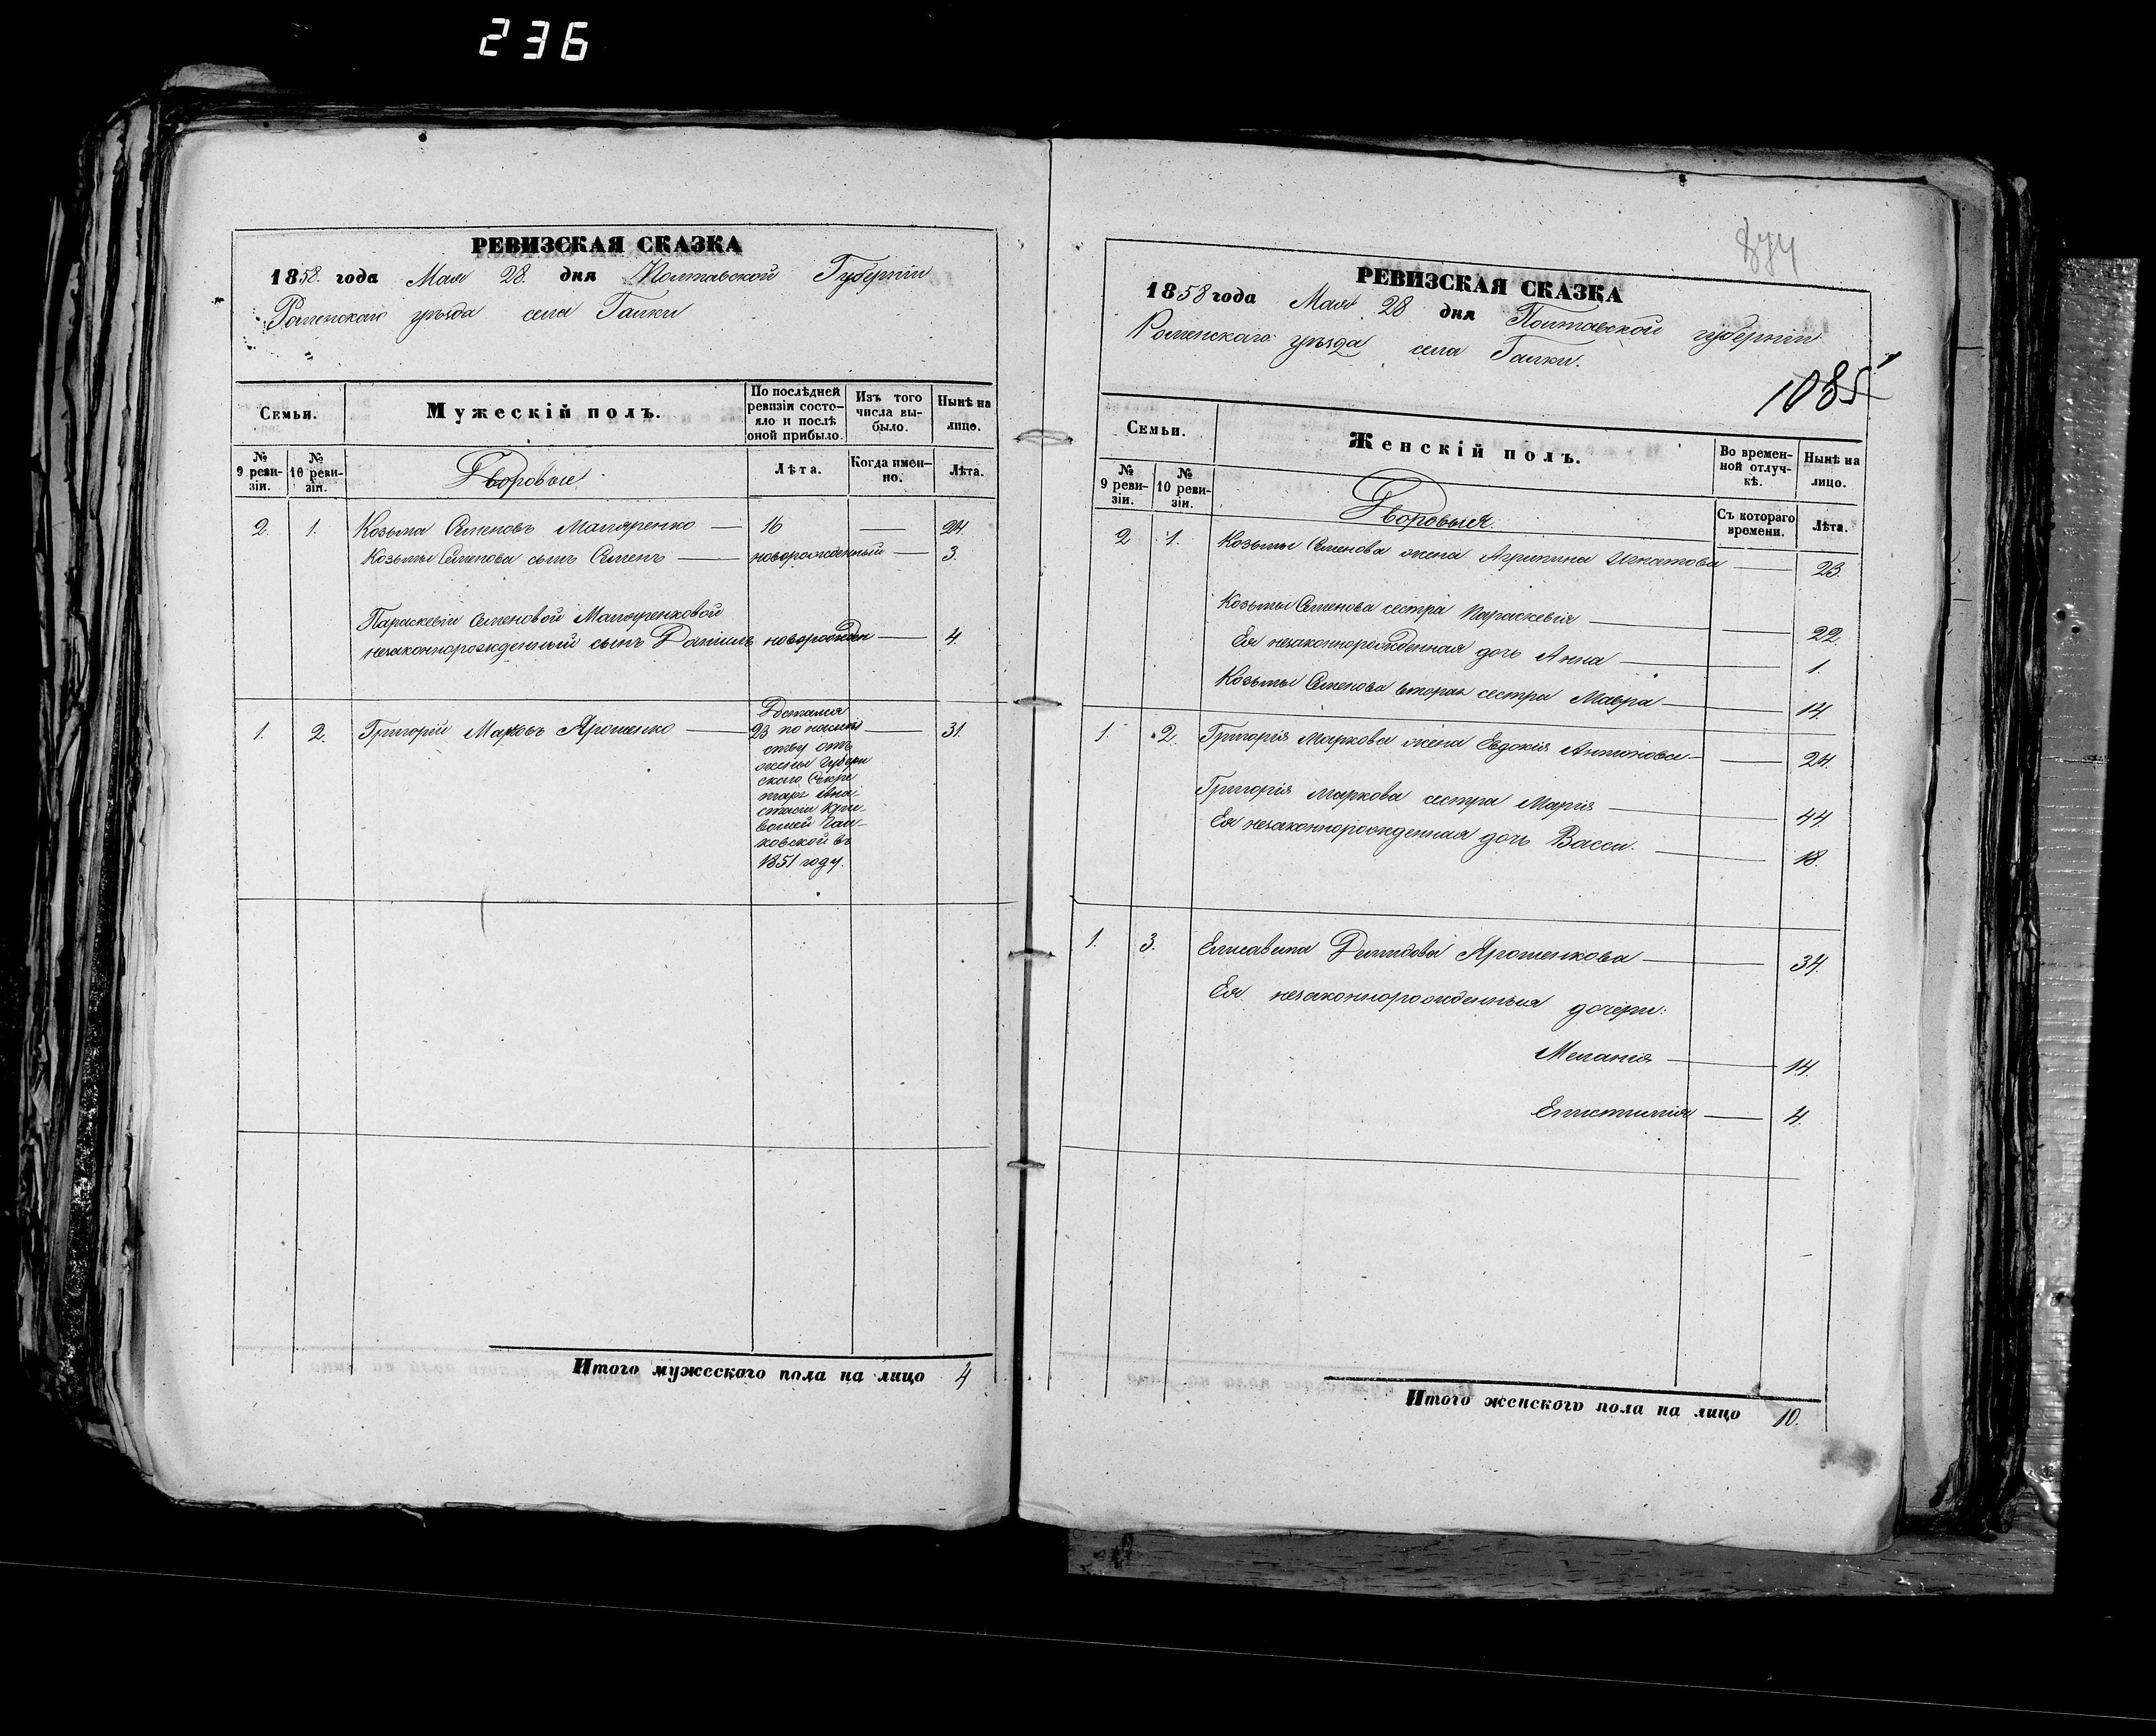 236
РЕВИЗСКАЯ СКАЗКА
1858. года Мая 28. дня Полтавской Губерніи
Роменскаго уѣзда села Галки
Семьи.
Мужескій полъ.
По послѣдней ревизіи состояло и послѣ оной прибыло.
Изъ того числа выбыло.
Нынѣ на лицо.
№ 9 ревизіи.
№ 10 ревизіи.
Дворовые
Лѣта.
Когда именно.
Лѣта.
2. 1. Козьма Семеновъ — 16 — 24.
Козьмы Семенова сынъ Семенъ — новорожденный — 3.
Параскевіи Семеновой
незаконнорожденный сынъ Даніилъ новорожден — 4.
1. 2. Григорій Марковъ Ярошенко — 23 — 31.
Достался
по наслѣд
ству отъ
жены Губерн
скаго Секре
таря Анас
тасіи
ковской въ
1851 году.
Итого мужескаго пола на лицо 4
874
РЕВИЗСКАЯ СКАЗКА
1858 года Мая 28 дня Полтавской губерніи
Роменскаго уѣзда села Галки.
1085
Семьи.
Женскій полъ.
Во временной отлучкѣ.
Нынѣ на лицо.
№ 9 ревизіи.
№ 10 ревизіи.
Дворовыя.
Съ котораго времени.
Лѣта.
2 1. Козьмы Семенова жена Агрипина Игнатова — 23.
Козьмы Семенова сестра Параскевія — 22.
Ея незаконнорожденная дочь Анна — 1.
Козьмы Семенова вторая сестра Мавра — 14.
1. 2. Григорія Маркова жена Евдокія Антонова — 24.
Григорія Маркова сестра Марія — 44.
Ея незаконнорожденная дочь Васса. — 18.
1. 3. Елисавета Демидова Ярошенкова — 34.
Ея незаконнорожденныя дочери:
Меланія — 14.
Епистимія — 4.
Итого женскаго пола на лицо 10.